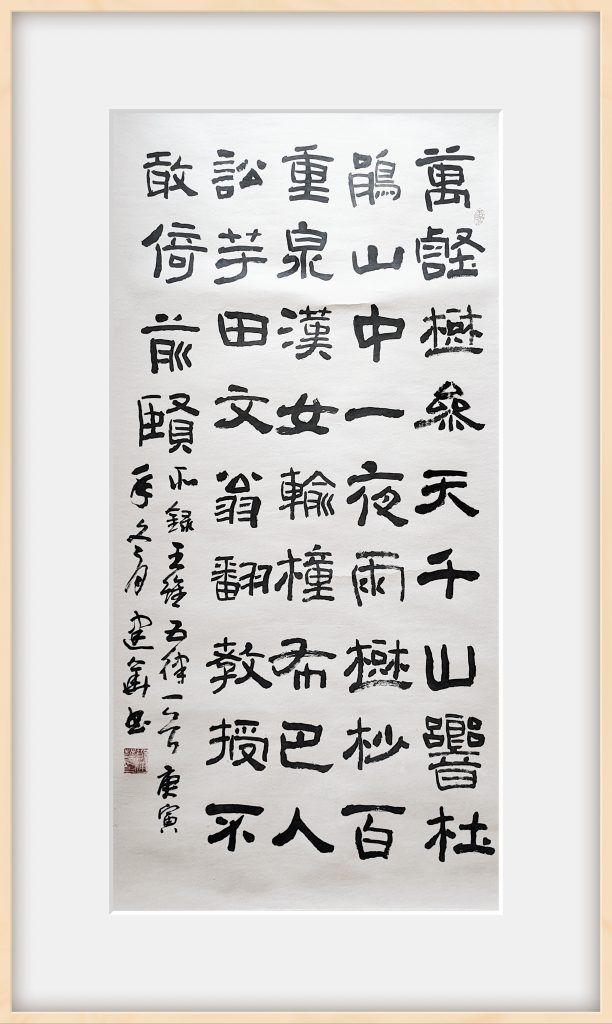 萬壑樹參天千山響杜
鵑山中一夜雨樹杪百
重泉漢女輸橦布巴人
訟芋田文翁翻教授不
敢倚前賢
右録王維五律一首庚寅
年冬月建華書